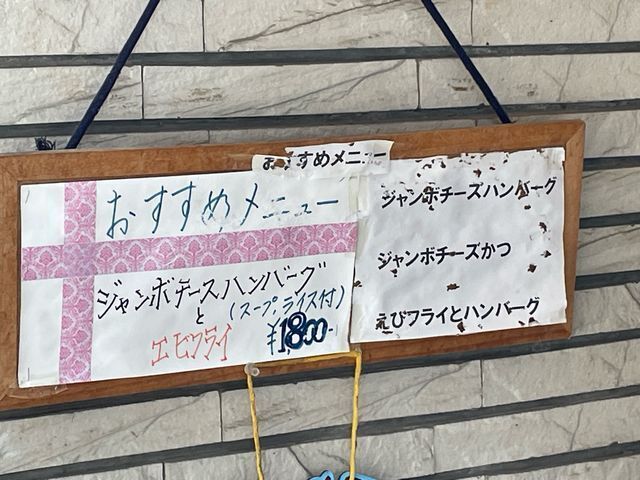 おすすめメニュー
おすすめメニュー
ジャンボチーズハンバーグ
と
(スープ,ライス付)
エビフライ
¥1800-
ジャンボチーズハンバーグ
ジャンボチーズかつ
えびフライとハンバーグ